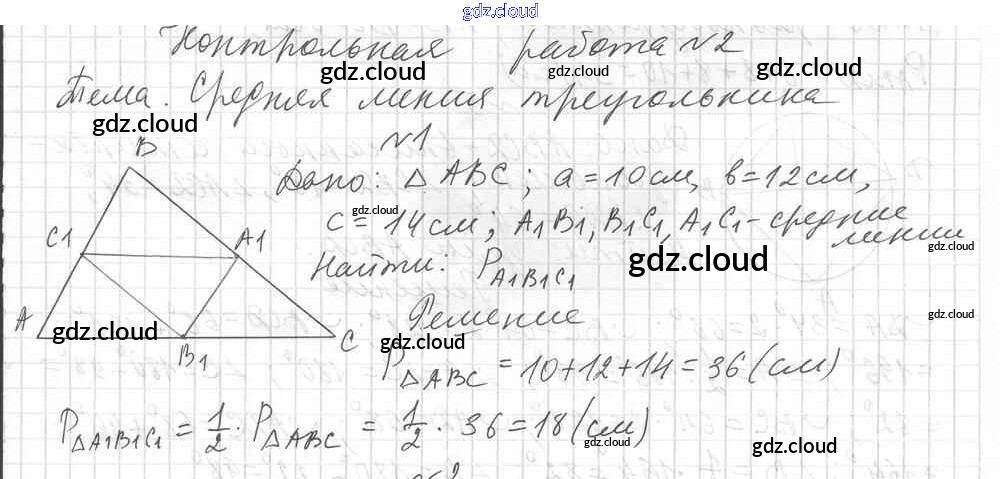 gdz.cloud
Контрольная работа №2
gdz.cloud gdz.cloud gdz.cloud
Тема. Средняя линия треугольника
gdz.cloud
№1
B
Дано: △ ABC; a=10см, b=12см,
c=14см; A1B1, B1C1, A1C1-средние
gdz.cloud
линии
C1 A1
gdz.cloud
Найти: P A1B1C1
gdz.cloud
Решение
gdz.cloud
A C
gdz.cloud gdz.cloud
B1
P△ABC = 10+12+14=36(см)
P△A1B1C1 = 1/2 · P△ABC = 1/2 · 36=18(см)
gdz.cloud gdz.cloud
№2